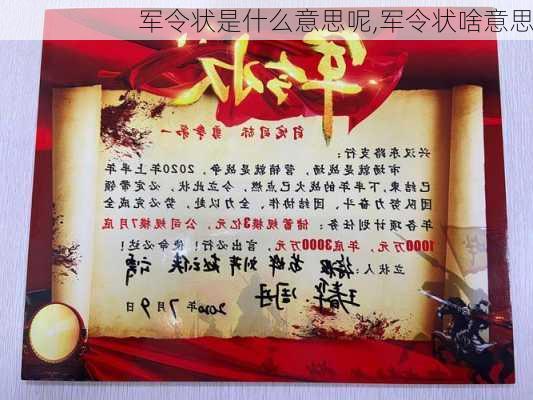 军令状是什么意思呢,军令状啥意思
军令状
锁定目标 勇争第一
兴汉东路支行：
市场就是战场，营销就是战争，2020年上半年
已结束，下半年的战火已点燃，今立此状，必定带领
团队努力奋斗，团结协作，全力以赴，势必完成全
年各项计划任务：储蓄规模3亿元，公司规模7月底
1000万元，年底3000万元，言出必行必使命必达！
立状人：
2020年7月9日